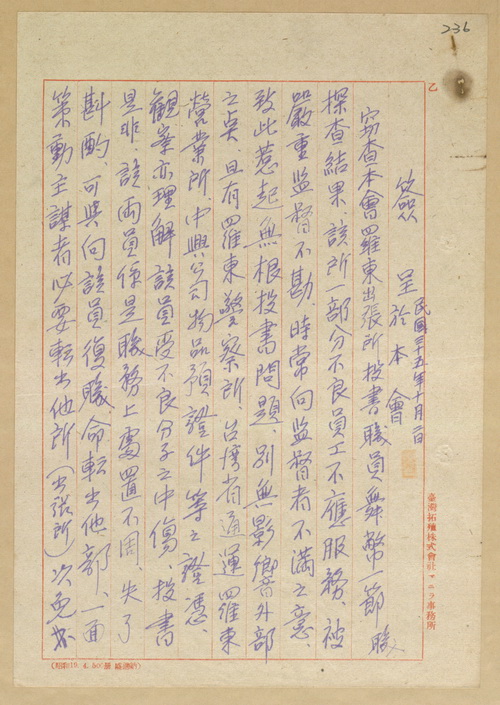 236
乙
簽呈 於本會 民國三十五年十月二日
竊查本會羅東出張所投書職員舞弊一節 職
探查結果、該所一部分不良員工不應服務、被
嚴重監督不勘、時常向監督者不滿之意、
致此惹起無根投書問題、別無影響外部
之吳、且有羅東警察所、台灣省通運羅東
營業所中興公司物品預證件等之證憑、
觀察亦理解該員受不良分子之中傷、投書
是非、該両員係是職務上處置不周、失了
斟酌、可與向該員復職、命転出他部、一面
策動主謀者必要転出他所(出張所)次免
臺灣拓殖株式會社マニラ事務所